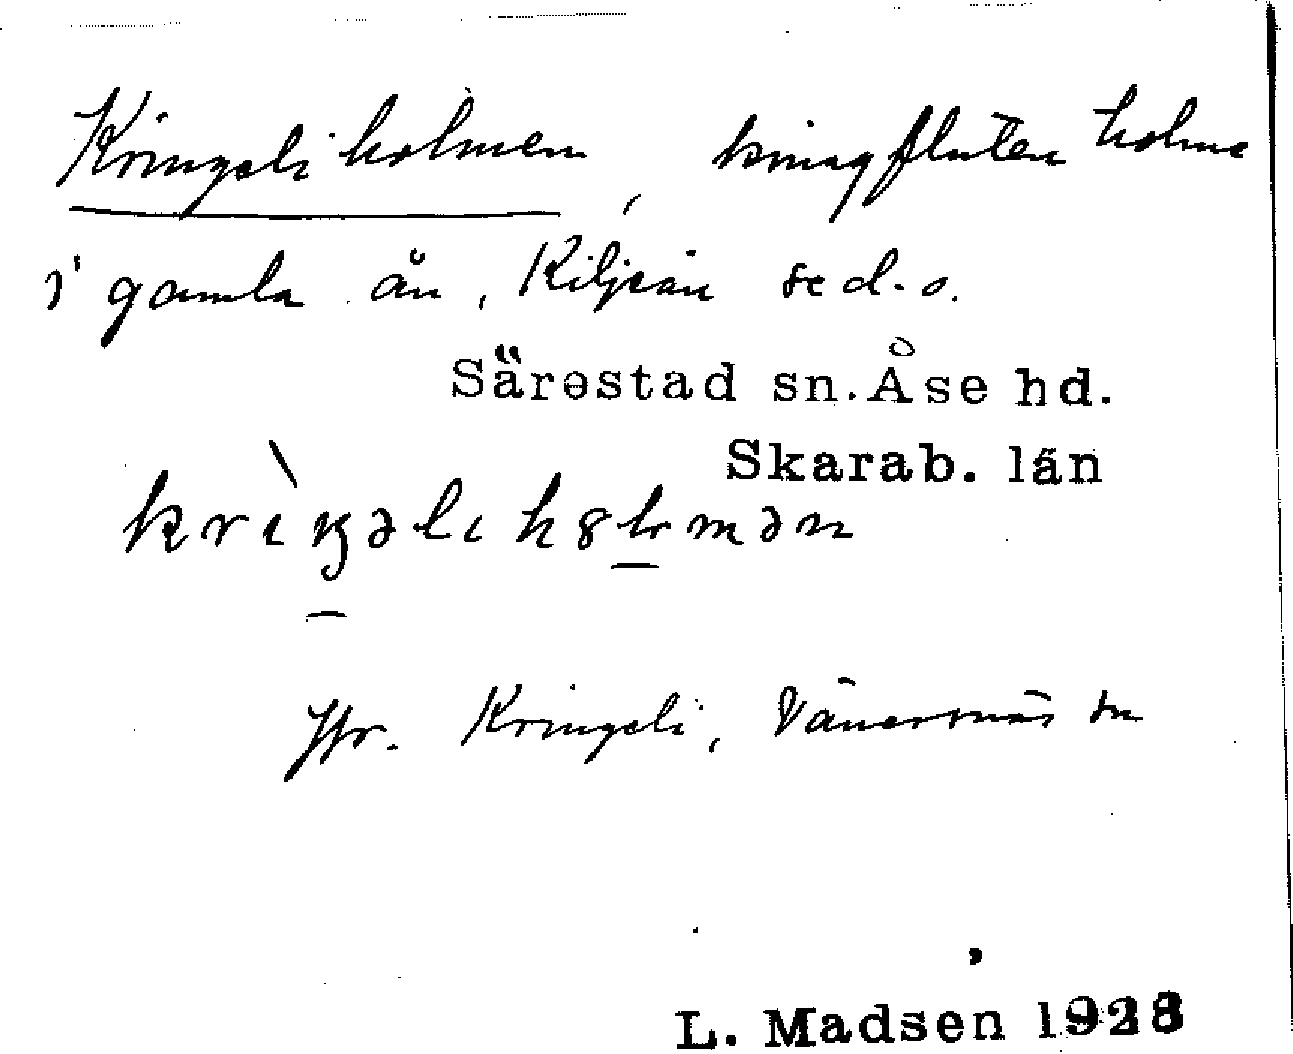 Kringeliholmen, kringfluten holme
i gamla ån, Kiljeån se d. o.
Särestad sn. Åse hd.
Skarab. län
Jfr. Kringeli, Vänersnäs sn
L. Madsen 1928